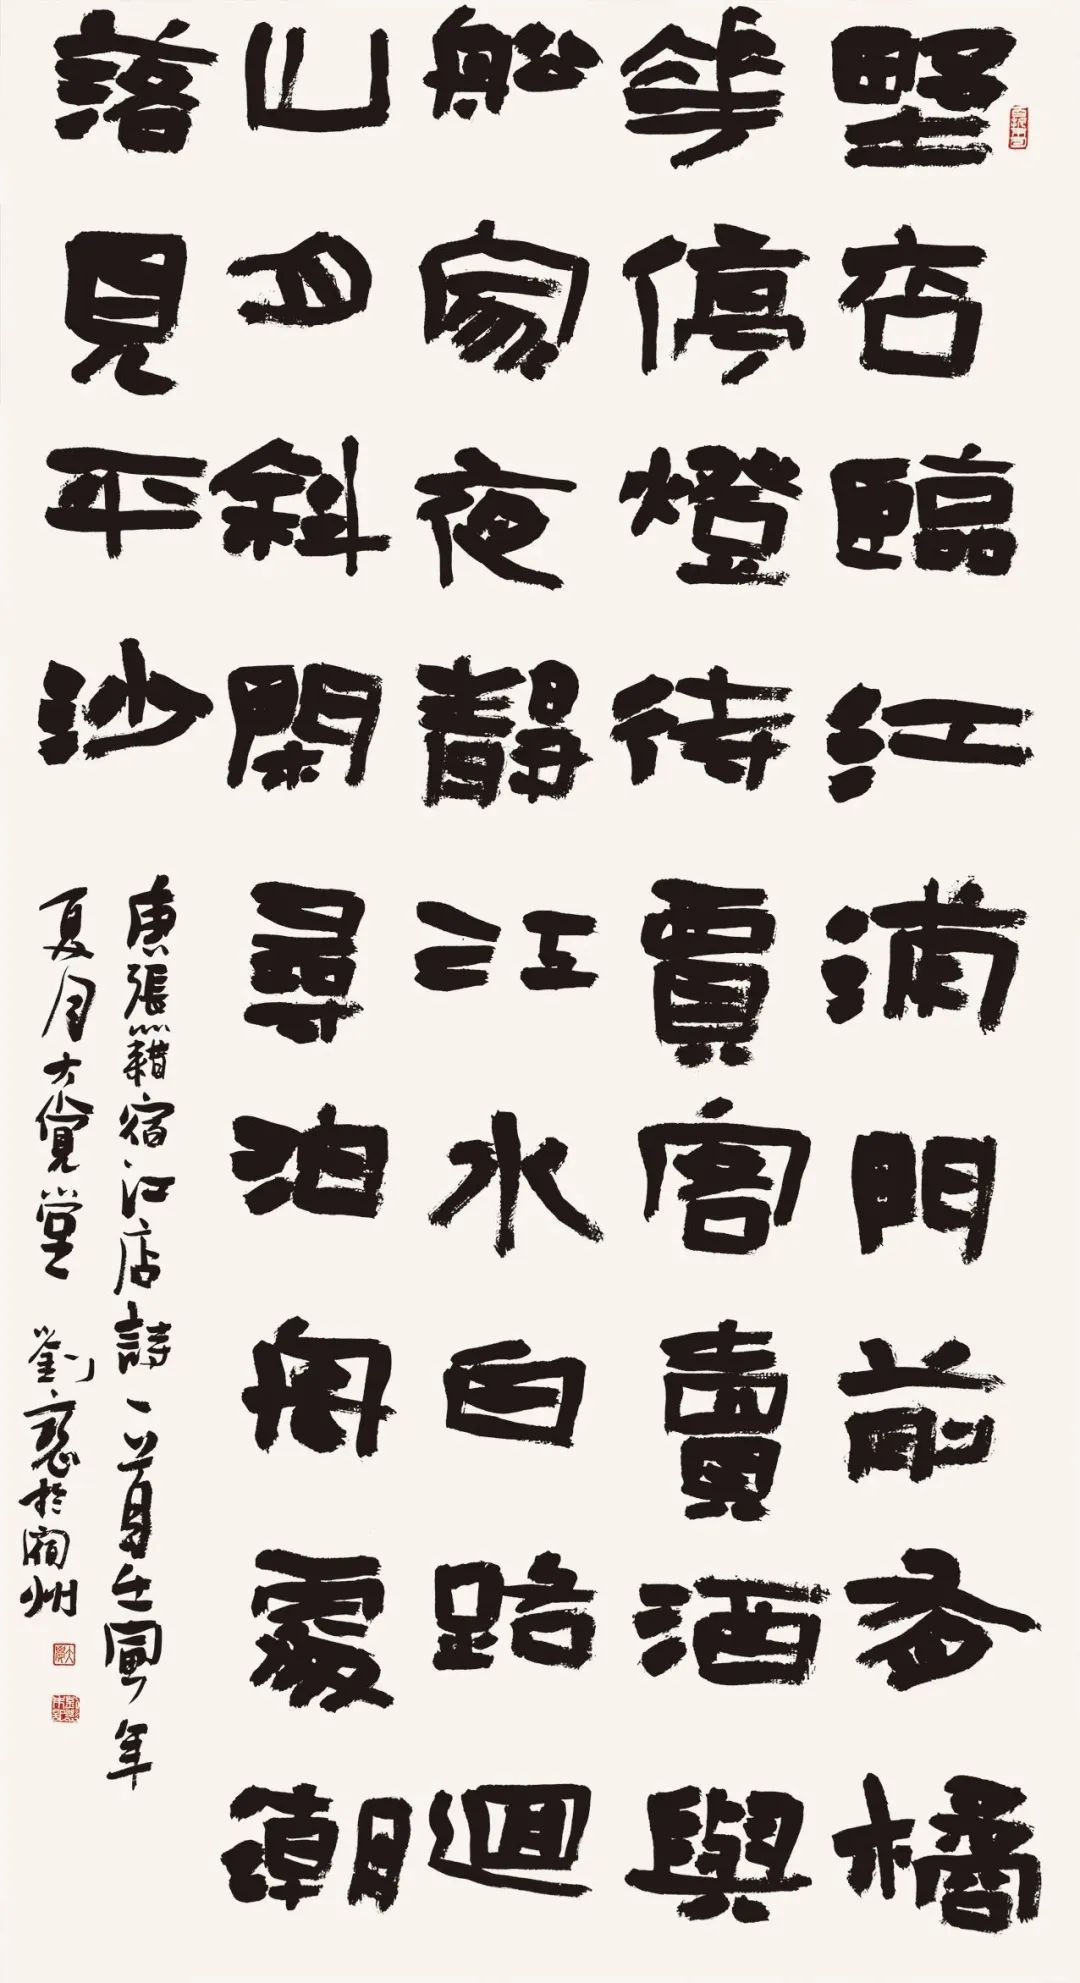 野店臨江浦門前有橘
華停燈待賈客賣酒與
船家夜靜江水白路迴
山月斜閑尋泊舟處潮
落見平沙
唐張籍宿江店詩一首壬寅年
夏月大覺堂 劉於宿州